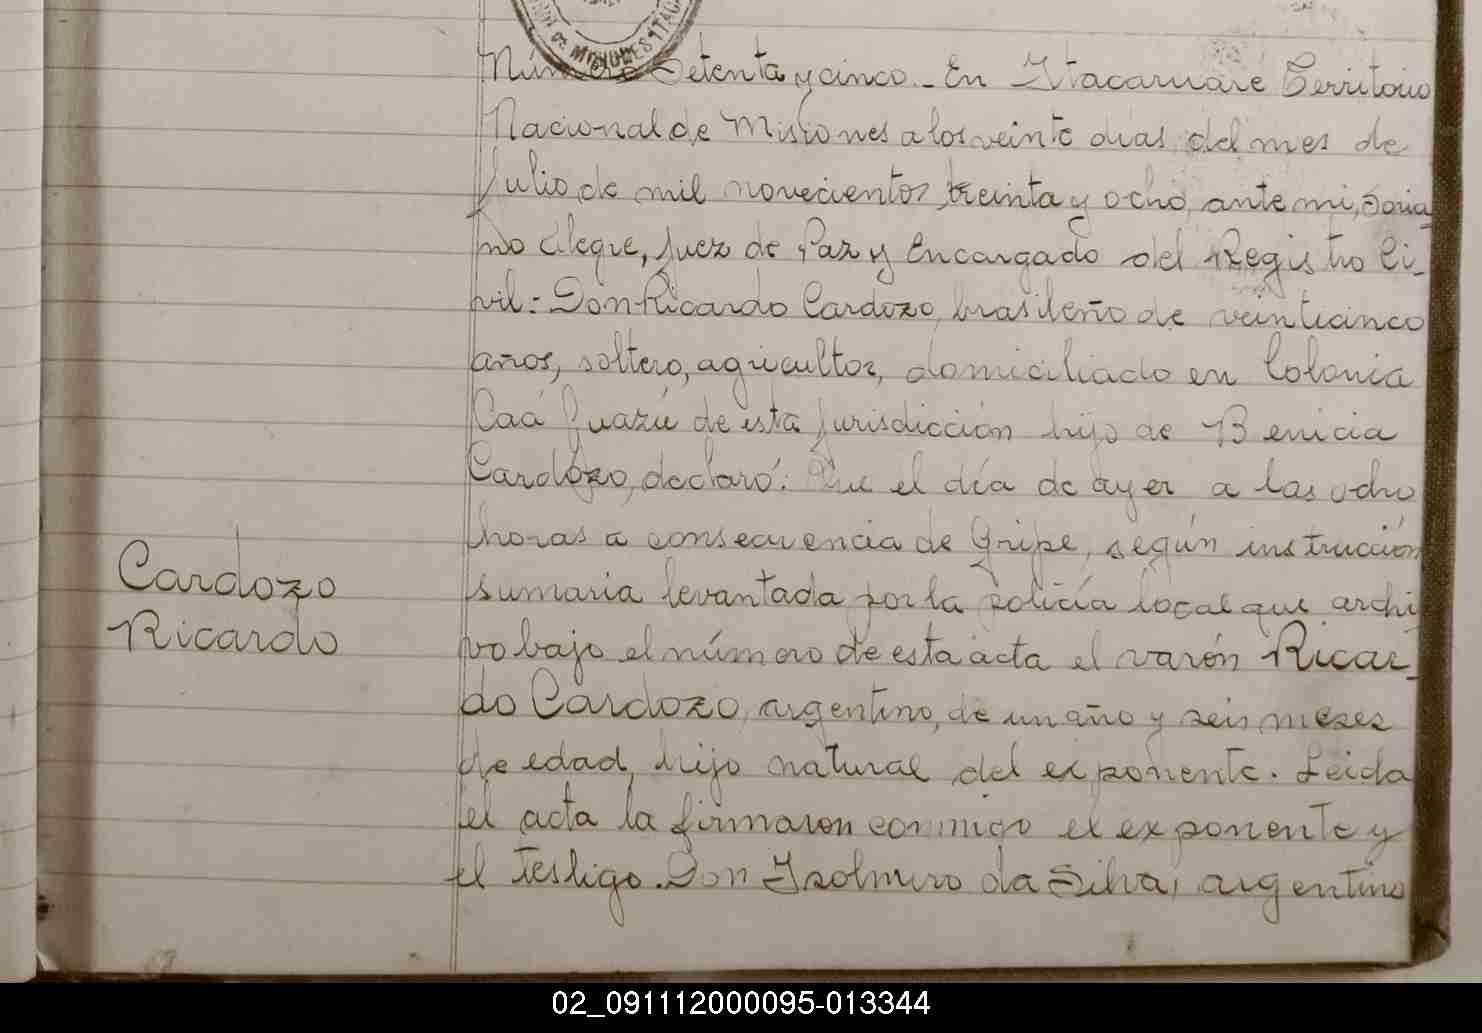 Número Setenta y cinco._ En Itacaruaré Territorio
Nacional de Misiones a los veinte dias del mes de
Julio de mil novecientos treinta y ocho, ante mi, Soria
no Alegre, Juez de Paz y Encargado del Registro Ci_
vil: Don Ricardo Cardozo, brasileño de veinticinco
años, soltero, agricultor, domiciliado en Colonia
Caá Guazú de esta Jurisdicción hijo de Benicia
Cardozo, declaró: Que el día de ayer a las ocho
horas a consecuencia de Gripe, según instrucción
Cardozo
Ricardo
sumaria levantada por la policía local que archi
vo bajo el número de esta acta el varón Ricar_
do Cardozo, argentino, de un año y seis meses
de edad, hijo natural del exponente. Leida
el acta la firmaron conmigo el exponente y
el testigo. Don Isolmiro da Silva, argentino
02_091112000095-013344